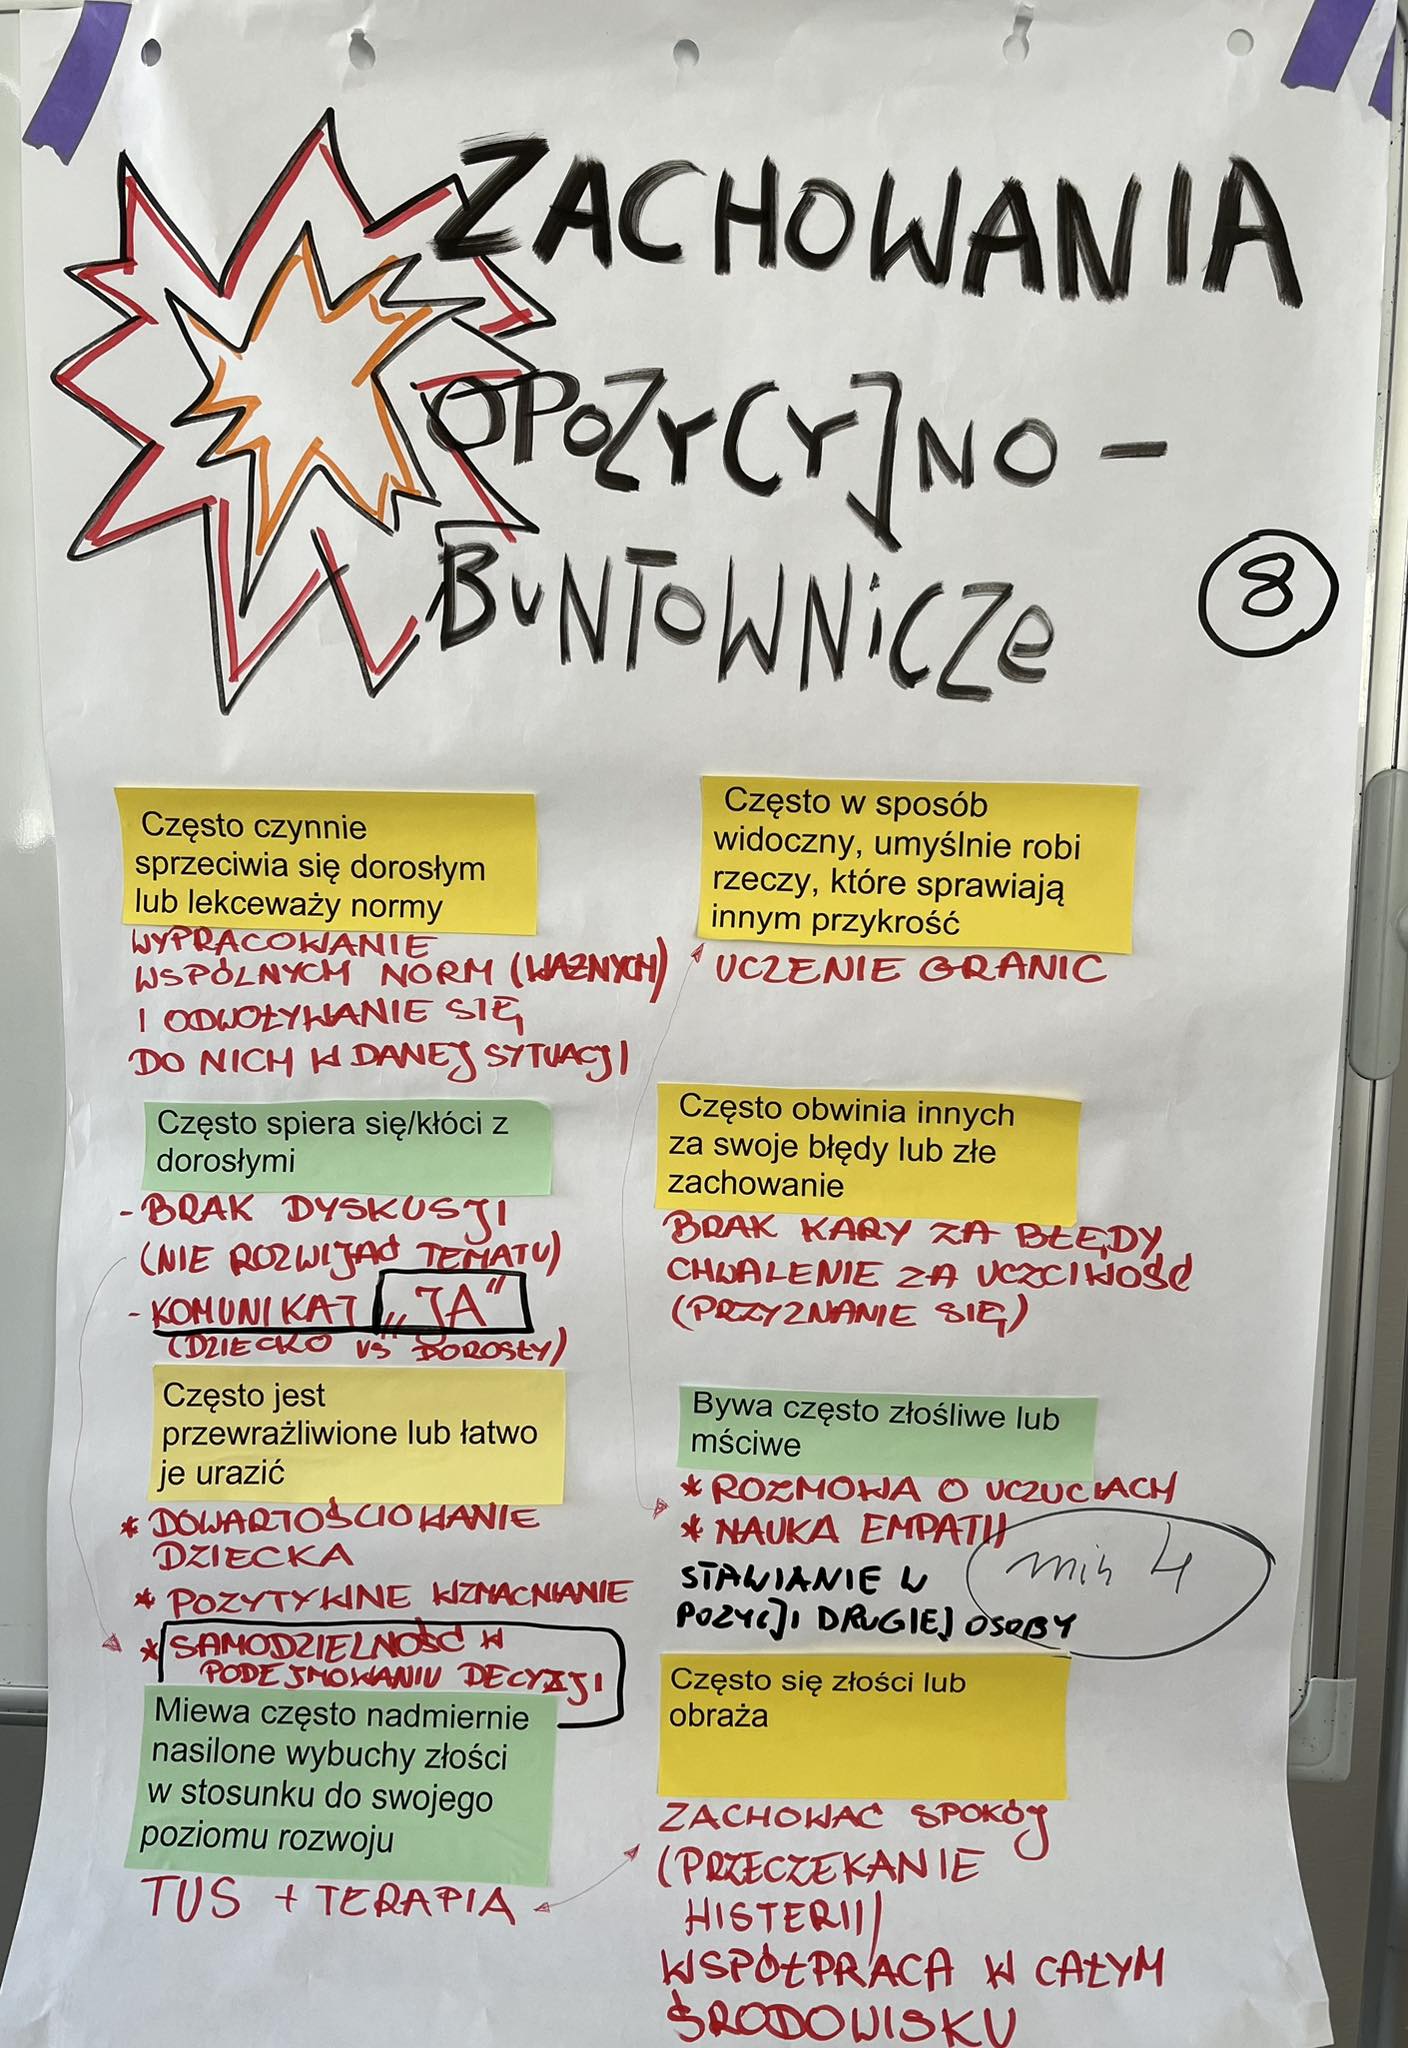 ZACHOWANIA
OPOZYCYJNO -
BUNTOWNICZE
8
Często czynnie
sprzeciwia się dorosłym
lub lekceważy normy
WYPRACOWANIE
WSPÓLNYCH NORM (WAŻNYCH)
I ODWOŁYWANIE SIĘ
DO NICH W DANEJ SYTUACJI
Często spiera się/kłóci z
dorosłymi
- BRAK DYSKUSJI
(NIE ROZWIJAĆ TEMATU)
- KOMUNIKAT „JA"
(DZIECKO VS DOROSŁY)
Często jest
przewrażliwione lub łatwo
je urazić
* DOWARTOŚCIOWANIE
DZIECKA
* POZYTYWNE WZMACNIANIE
* SAMODZIELNOŚĆ W
PODEJMOWANIU DECYZJI
Miewa często nadmiernie
nasilone wybuchy złości
w stosunku do swojego
poziomu rozwoju
TUS + TERAPIA
Często w sposób
widoczny, umyślnie robi
rzeczy, które sprawiają
innym przykrość
UCZENIE GRANIC
Często obwinia innych
za swoje błędy lub złe
zachowanie
BRAK KARY ZA BŁĘDY
CHWALENIE ZA UCZCIWOŚĆ
(PRZYZNANIE SIĘ)
Bywa często złośliwe lub
mściwe
* ROZMOWA O UCZUCIACH
* NAUKA EMPATII
STAWIANIE W
POZYCJI DRUGIEJ OSOBY
min 4
Często się złości lub
obraża
ZACHOWAĆ SPOKÓJ
(PRZECZEKANIE
HISTERII)
WSPÓŁPRACA W CAŁYM
ŚRODOWISKU